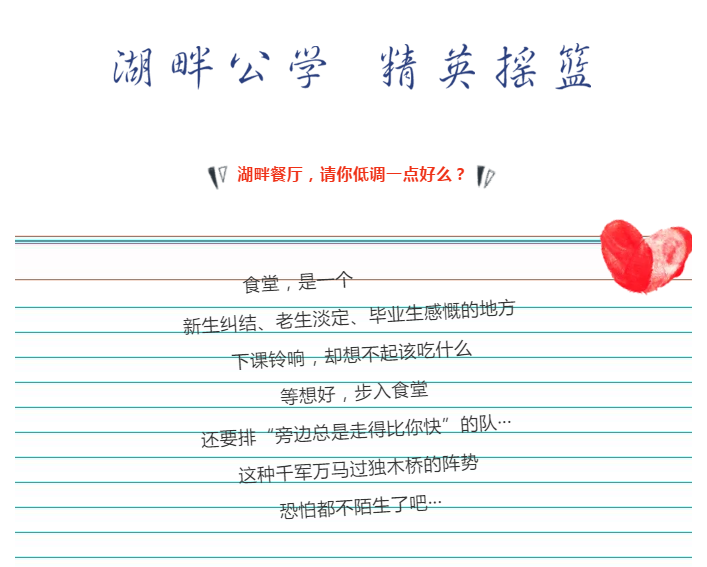 湖畔公学 精英摇篮
湖畔餐厅，请你低调一点好么？
食堂，是一个
新生纠结、老生淡定、毕业生感慨的地方
下课铃响，却想不起该吃什么
等想好，步入食堂
还要排“旁边总是走得比你快”的队…
这种千军万马过独木桥的阵势
恐怕都不陌生了吧…